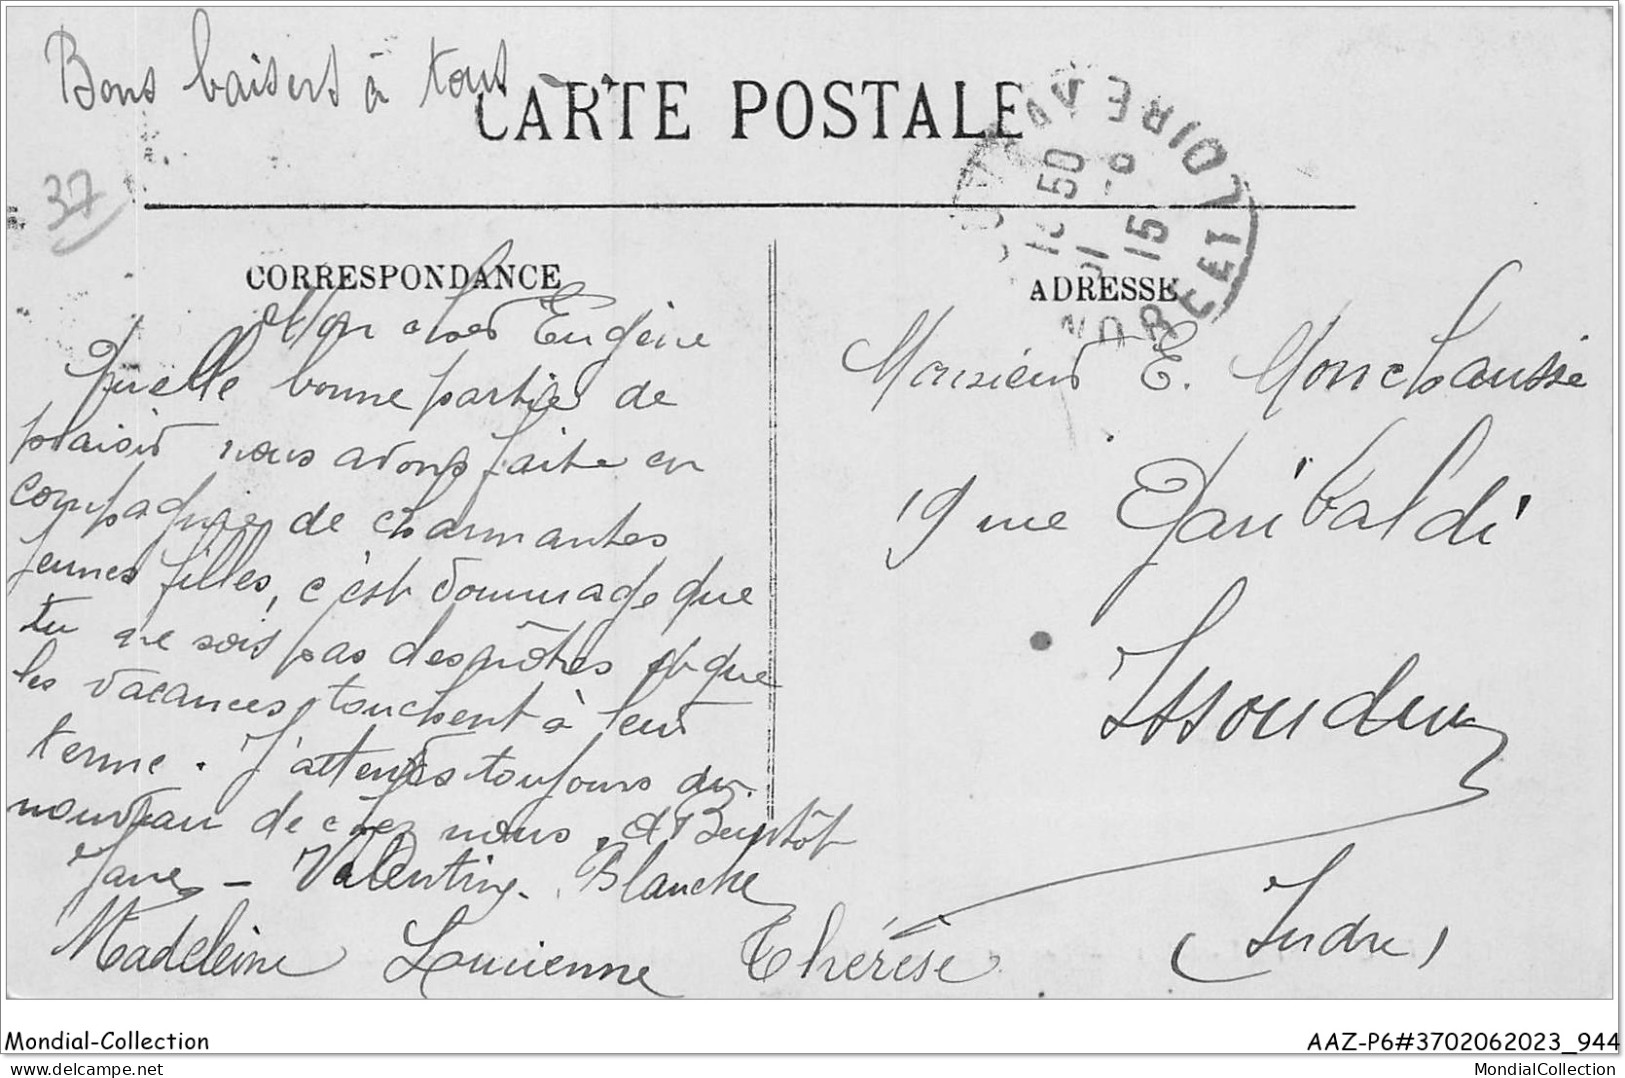 Bons baisers à tous
CARTE POSTALE
INDRE ET LOIRE
50
15
37
CORRESPONDANCE
ADRESSE
Mon cher Eugène
Quelle bonne partie de
plaisir nous avons faite en
compagnie de charmantes
jeunes filles, c'est dommage que
tu ne sois pas des nôtres et que
les vacances touchent à leur
terme. J'attends toujours du
nouveau de chez nous. A Bientôt
Jane - Valentine - Blanche
Madeleine Lucienne Thérèse
Monsieur E. Monchaussie
19 rue Garibaldi
Issoudun
(Indre)
Mondial-Collection
AAZ-P6#3702062023_944
delcampe.net
MondialCollection